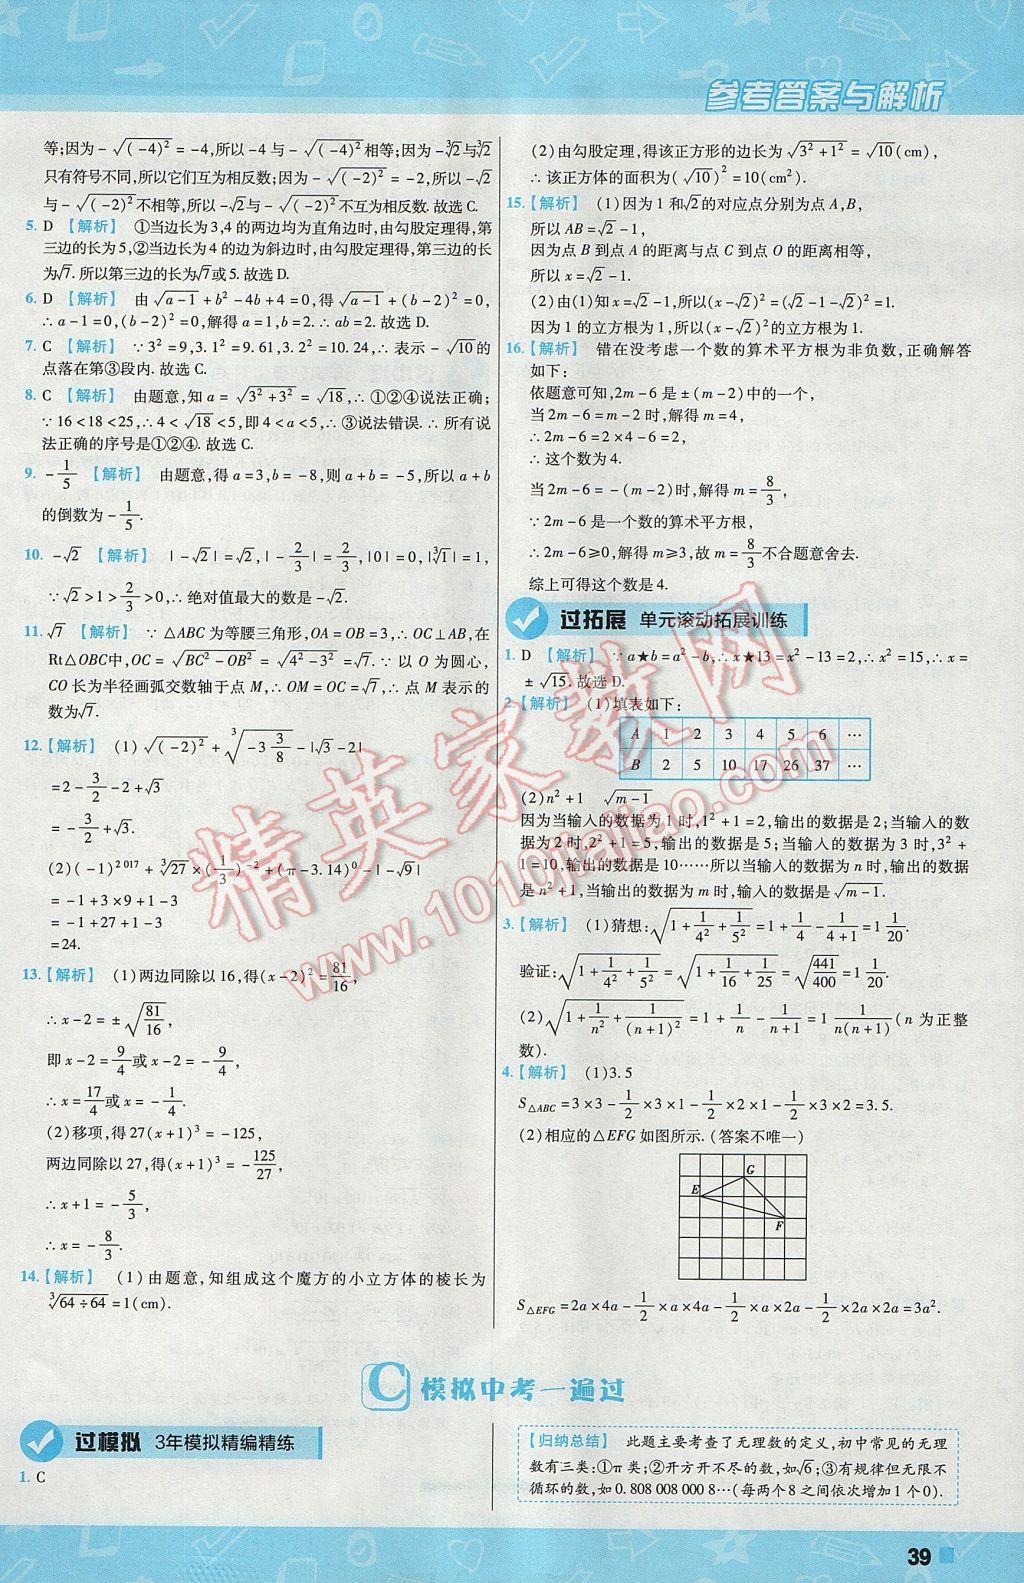 参考答案与解析
等;因为-√(-4)²=-4,所以-4与-√(-4)²相等;因为-∛2与∛2
只有符号不同,所以它们互为相反数;因为-√(-2)²=-2,所以-√2
与-√(-2)²不相等,所以-√2与-√(-2)²不互为相反数.故选C.
5. D 【解析】 ①当边长为3,4的两边均为直角边时,由勾股定理得,第
三边的长为5,②当边长为4的边为斜边时,由勾股定理得,第三边的长
为√7.所以第三边的长为√7或5.故选D.
6. D 【解析】 由√a-1+b²-4b+4=0,得√a-1+(b-2)²=0,
∴a-1=0,(b-2)²=0,解得a=1,b=2.∴ab=2.故选D.
7. C 【解析】 ∵3²=9,3.1²=9.61,3.2²=10.24,∴表示-√10的
点落在第③段内.故选C.
8. C 【解析】 由题意,知a=√3²+3²=√18,∴①②④说法正确;
∵16<18<25,∴4<√18<5,即4<a<5,∴③说法错误.∴所有说
法正确的序号是①②④.故选C.
9. -1/5 【解析】 由题意,得a=3,b=-8,则a+b=-5,所以a+b
的倒数为-1/5.
10. -√2 【解析】 |-√2|=√2,|-2/3|=2/3,|0|=0,|∛1|=1,
∵√2>1>2/3>0,∴绝对值最大的数是-√2.
11. √7 【解析】 ∵△ABC为等腰三角形,OA=OB=3,∴OC⊥AB,在
Rt△OBC中,OC=√BC²-OB²=√4²-3²=√7.∵以O为圆心,
CO长为半径画弧交数轴于点M,∴OM=OC=√7,∴点M表示的
数为√7.
12.【解析】 (1)√(-2)²+∛-3 3/8-|√3-2|
=2-3/2-2+√3
=-3/2+√3.
(2)(-1)²⁰¹⁷+∛27×(-1/3)⁻²+(π-3.14)⁰-|-√9|
=-1+3×9+1-3
=-1+27+1-3
=24.
13.【解析】 (1)两边同除以16,得(x-2)²=81/16,
∴x-2=±√81/16,
即x-2=9/4或x-2=-9/4,
∴x=17/4或x=-1/4.
(2)移项,得27(x+1)³=-125,
两边同除以27,得(x+1)³=-125/27,
∴x+1=-5/3,
∴x=-8/3.
14.【解析】 (1)由题意,知组成这个魔方的小立方体的棱长为
∛64÷64=1(cm).
(2)由勾股定理,得该正方形的边长为√3²+1²=√10(cm),
∴该正方体的面积为(√10)²=10(cm²).
15.【解析】 (1)因为1和√2的对应点分别为点A,B,
所以AB=√2-1,
因为点B到点A的距离与点C到点O的距离相等,
所以x=√2-1.
(2)由(1)知x=√2-1,所以(x-√2)²=(√2-1-√2)²=1.
因为1的立方根为1,所以(x-√2)²的立方根为1.
16.【解析】 错在没考虑一个数的算术平方根为非负数,正确解答
如下:
依题意可知,2m-6是±(m-2)中的一个,
当2m-6=m-2时,解得m=4,
∴2m-6=2×4-6=2,
∴这个数为4.
当2m-6=-(m-2)时,解得m=8/3,
∵2m-6是一个数的算术平方根,
∴2m-6≥0,解得m≥3,故m=8/3不合题意舍去.
综上可得这个数是4.
过拓展 单元滚动拓展训练
1. D 【解析】 ∵a★b=a²-b,∴x★13=x²-13=2,∴x²=15,∴x=
±√15.故选D.
2.【解析】 (1)填表如下:
A 1 2 3 4 5 6 …
B 2 5 10 17 26 37 …
(2)n²+1 √m-1
因为当输入的数据为1时,1²+1=2,输出的数据是2;当输入的数
据为2时,2²+1=5,输出的数据是5;当输入的数据为3时,3²+
1=10,输出的数据是10……所以当输入的数据为n时,输出的数据是
n²+1,当输出的数据为m时,输入的数据为√m-1.
3.【解析】 (1)猜想:√1+1/4²+1/5²=1+1/4-1/4+1=1 1/20.
验证:√1+1/4²+1/5²=√1+1/16+1/25=√441/400=1 1/20.
(2)√1+1/n²+1/(n+1)²=1+1/n-1/n+1=1 1/n(n+1)(n为正整
数).
4.【解析】 (1)3.5
S△ABC=3×3-1/2×3×1-1/2×2×1-1/2×3×2=3.5.
(2)相应的△EFG如图所示.(答案不唯一)
G
E
F
S△EFG=2a×4a-1/2×a×4a-1/2×a×2a-1/2×2a×2a=3a².
C 模拟中考一遍过
过模拟 3年模拟精编精练
1. C
【归纳总结】 此题主要考查了无理数的定义,初中常见的无理
数有三类:①π类;②开方开不尽的数,如√6;③有规律但无限不
循环的数,如0.808 008 000 8…(每两个8之间依次增加1个0).
39
精英家教网
www.1010jiajiao.com